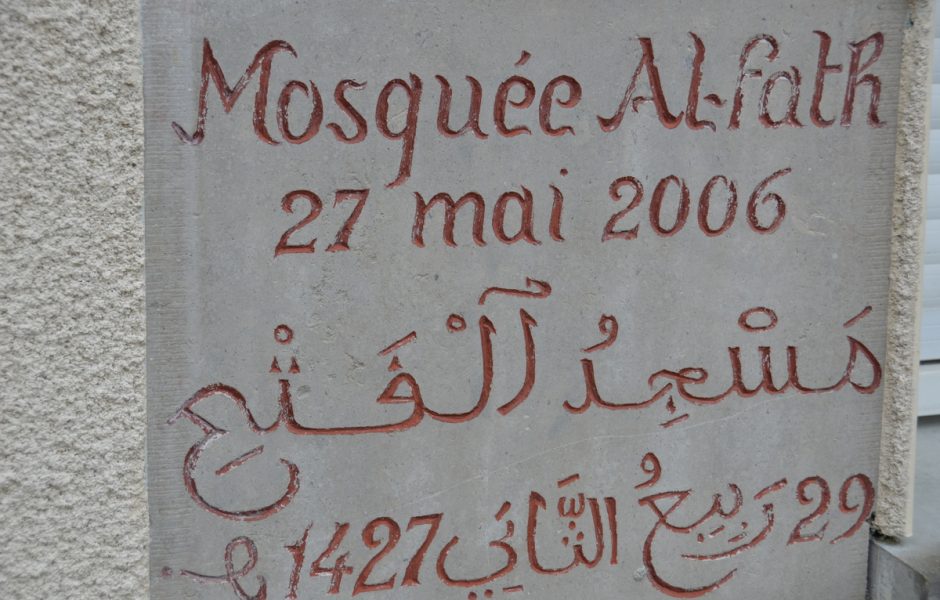 Mosquée Al-fath
27 mai 2006
مَسْجِدُ ٱلْفَتْحِ
29 رَبِيعُ الثَّانِي 1427 هـ